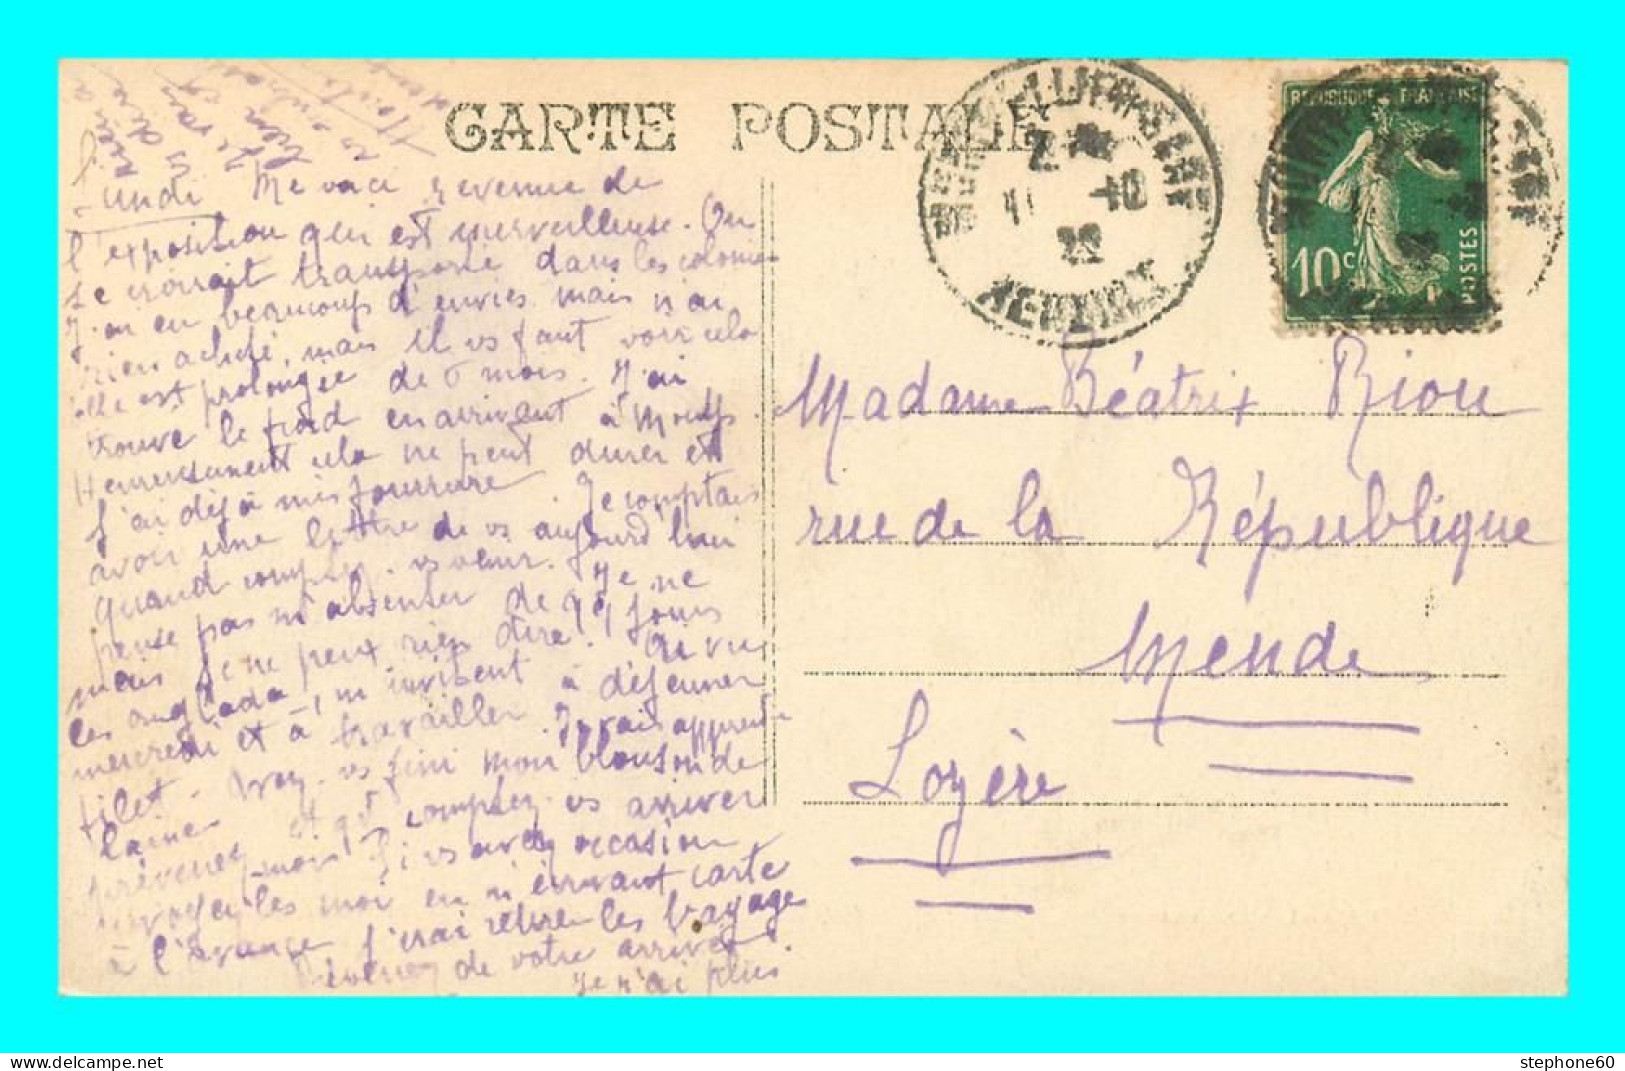 CARTE POSTALE
REPUBLIQUE FRANÇAISE
10c
POSTES
22
Lundi Me voici revenue de
l'exposition qui est merveilleuse. On
se croirait transporté dans les colonies
J'ai eu beaucoup d'envies mais n'ai
rien acheté, mais il vs faut voir cela
elle est prolongée de 6 mois. J'ai
trouvé le froid en arrivant à
Heureusement cela ne peut durer et
j'ai déjà mis fourrure. Je comptais
avoir une lettre de vs aujourd'hui
Quand comptez-vs venir. Je ne
pense pas m'absenter de qq jours
mais je ne peux rien dire. Ai vu
les anglada m'invisent à déjeuner
mercredi et à travailler. J'irai apprendre
filet. Avez-vs fini mon blouson de
laine et qd comptez-vs arriver
prévenez-moi Si vs avez occasion
envoyez les moi en m'écrivant carte
à l'avance j'irai retirer les bagage
Prévenez de votre arrivée
Je n'ai plus
rien à
vs dire
Madame Béatrix Riou
rue de la République
Mende
Lozère
stephone60